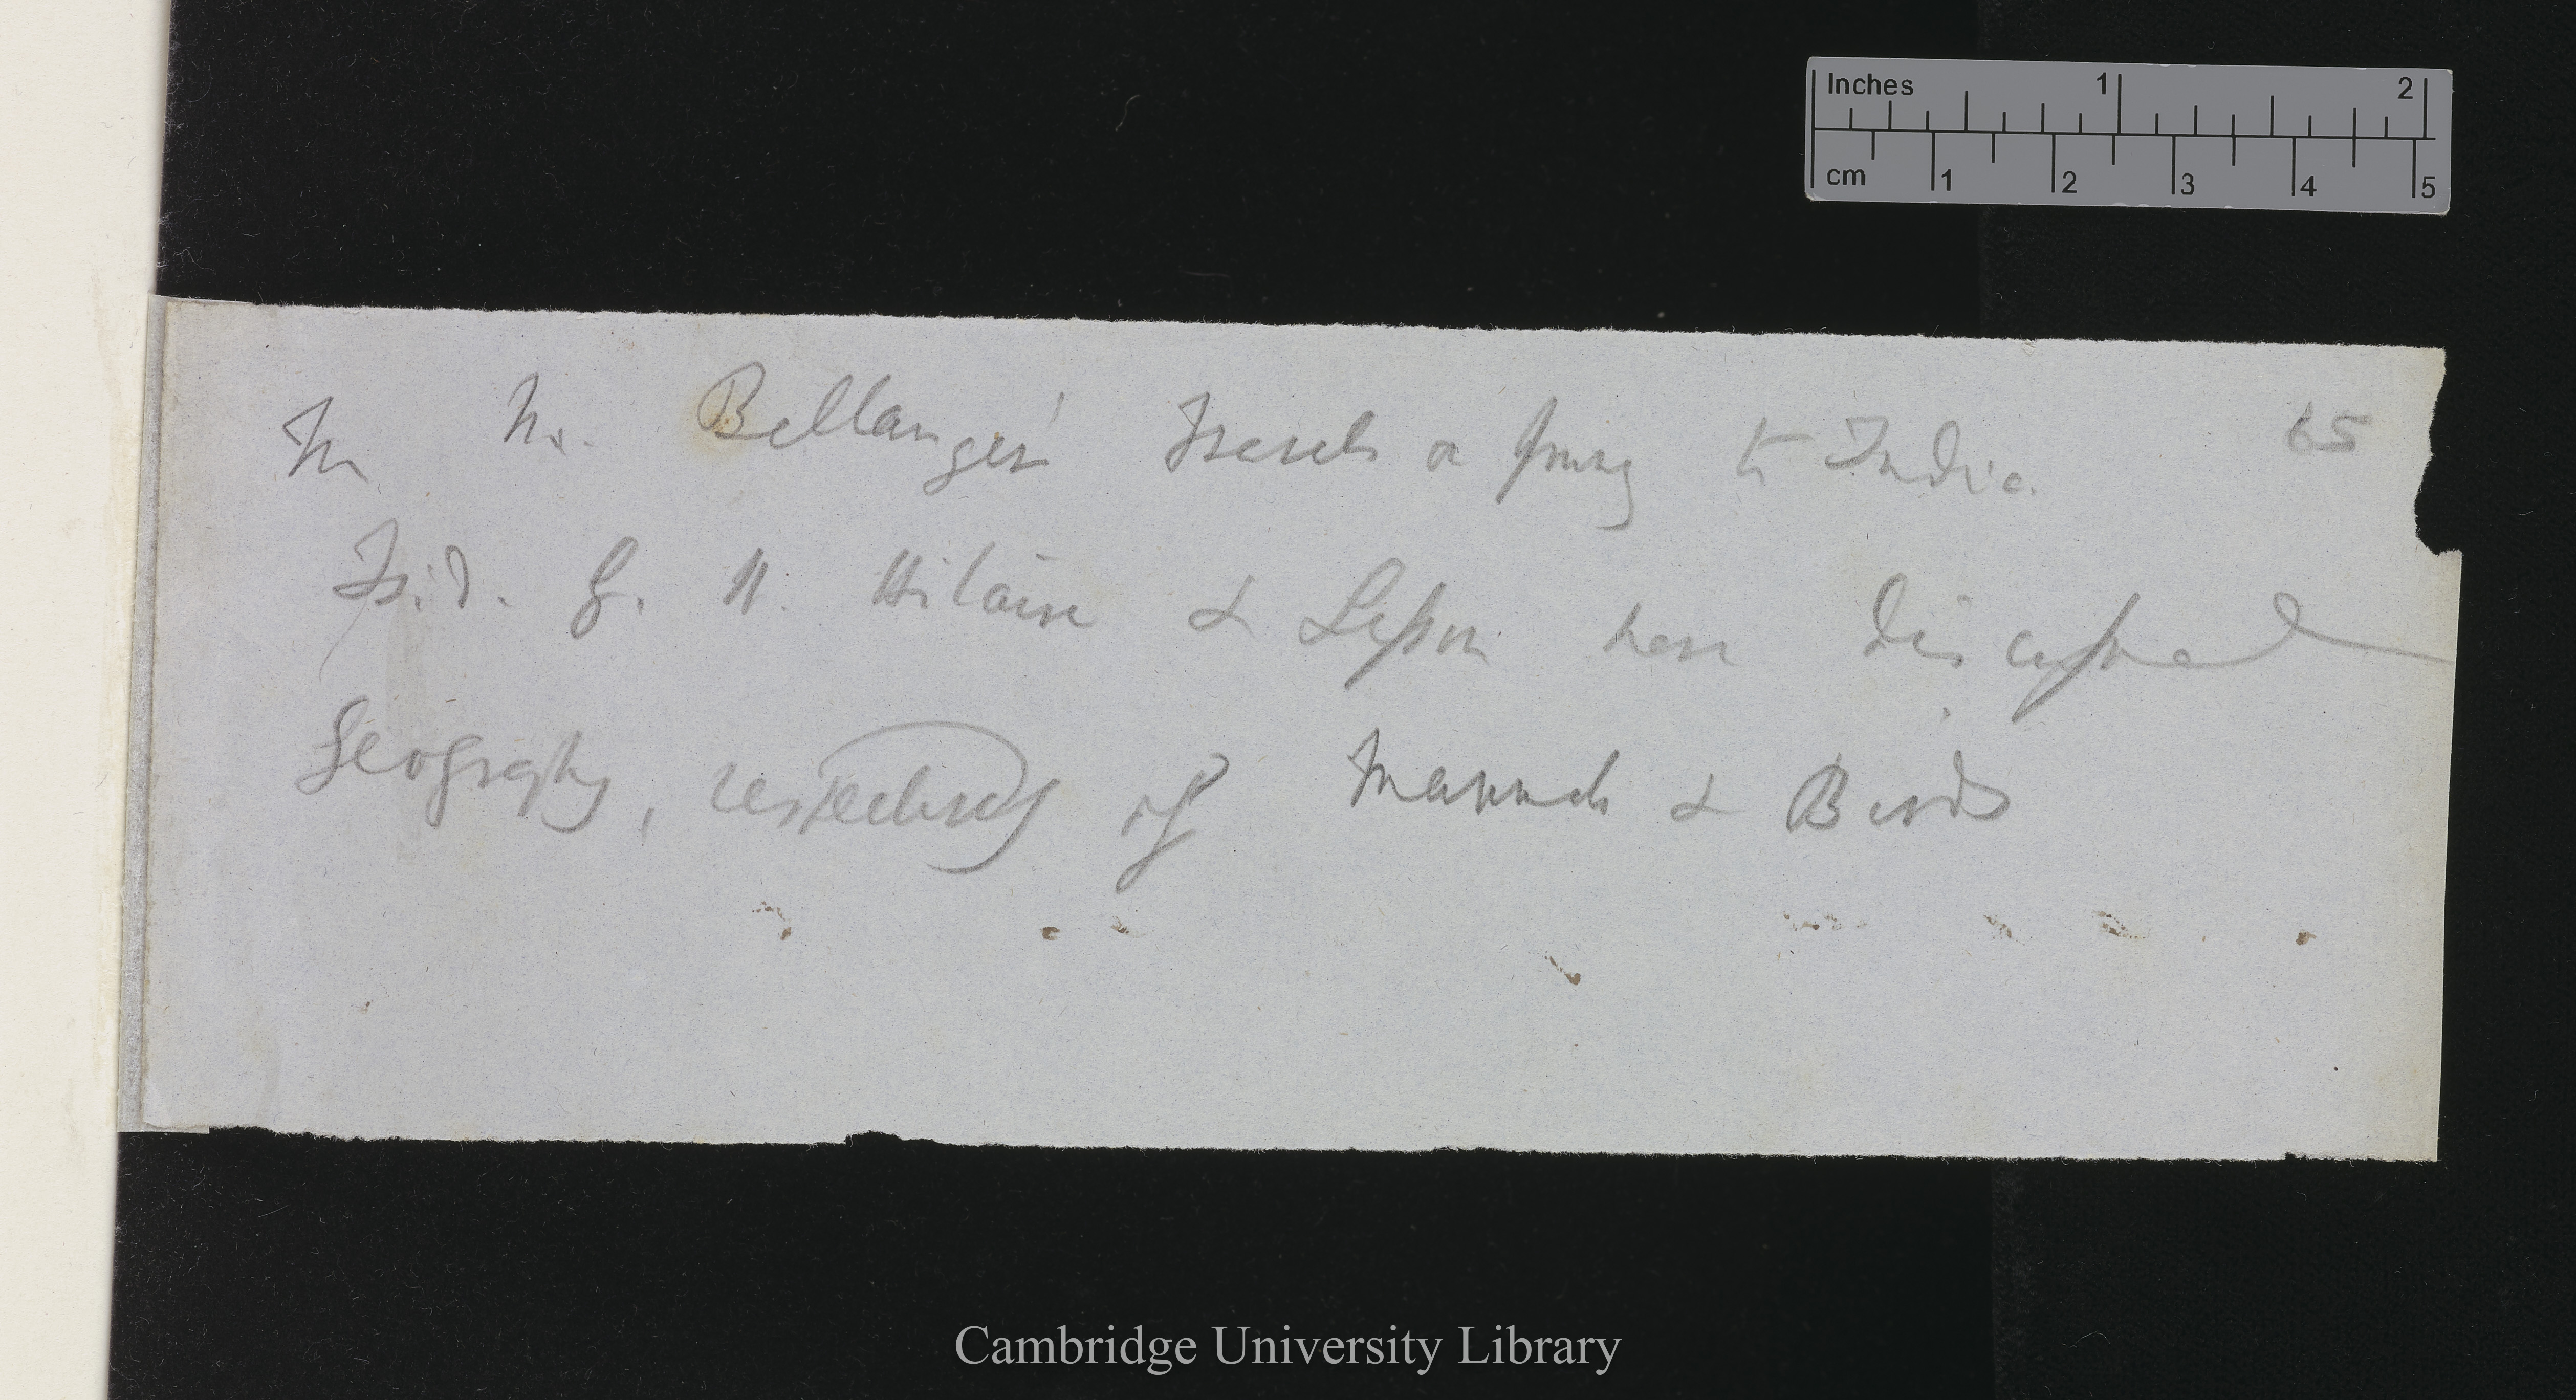 Inches 1 2
cm 1 2 3 4 5
In M. Bellanger's Travels or journey to India 65
Isid. G. St. Hilaire & Lesson have discussed
Geography, respectively of Mammals & Birds
Cambridge University Library